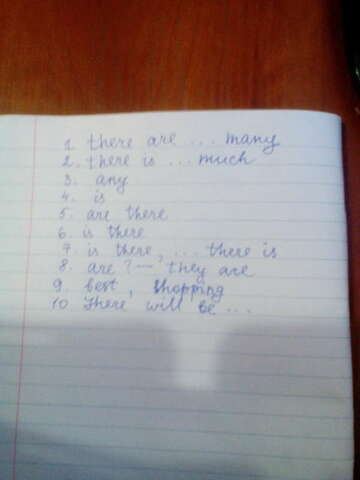 1. there are ... many
2. there is ... much
3. any
4. is
5. are there
6. is there
7. is there, ... there is
8. are? — they are
9. best, shopping
10 There will be ...